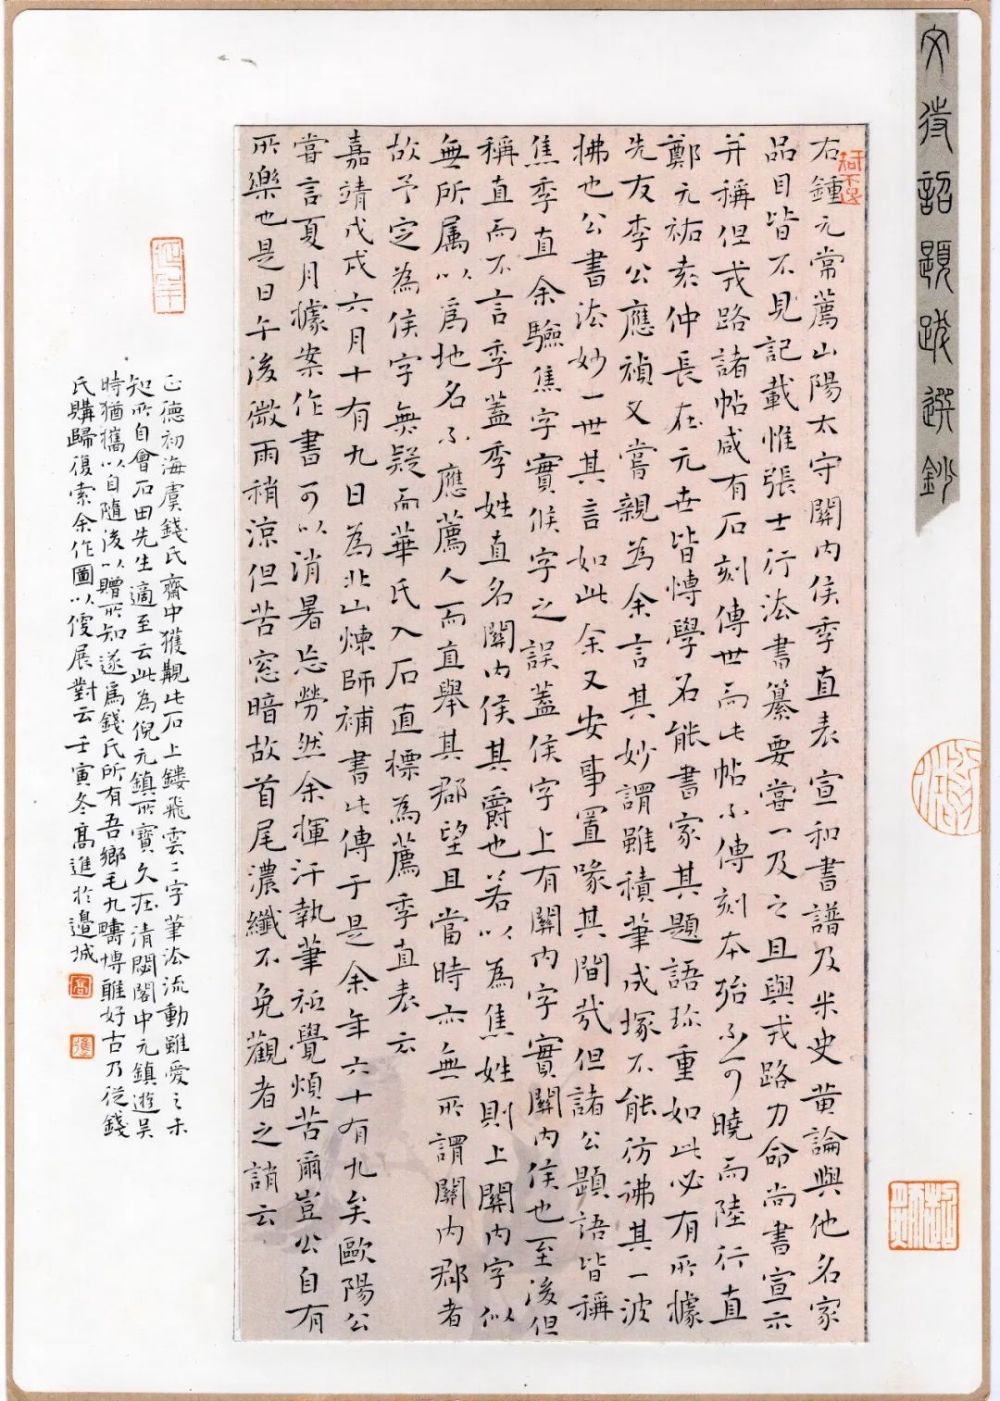 文待詔題跋選鈔
右鍾元常薦山陽太守關內侯季直表宣和書譜及米史黄論與他名家
品目皆不見記載惟張士行法書纂要嘗一及之且與戎路力命尚書宣示
并稱但戎路諸帖咸有石刻傳世而此帖不傳刻本殆不可曉而陸行直
鄭元祐袁仲長在元世皆博學名能書家其題語珍重如此必有所據
先友李公應禎又嘗親為余言其妙謂雖積筆成塚不能彷彿其一波
拂也公書法妙一世其言如此余又安事置喙其間哉但諸公題語皆稱
焦季直余驗焦字實候字之誤蓋侯字上有關內字實關內侯也至後但
稱直而不言季蓋季姓直名關內侯其爵也若以為焦姓則上關內字似
無所属以為地名不應薦人而直舉其郡望且當時亦無所謂關內郡者
故予定為侯字無疑而華氏入石直標為薦季直表云
嘉靖戊戌六月十有九日為北山煉師補書此傳于是余年六十有九矣歐陽公
嘗言夏月據案作書可以消暑忘勞然余揮汗執筆祗覺煩苦爾豈公自有
所樂也是日午後微雨稍涼但苦窓暗故首尾濃纖不免觀者之誚云
正德初海虞錢氏齋中獲觀此石上鏤飛雲二字筆法流動雖愛之未
知所自會石田先生適至云此為倪元鎮所寶久在清閟閣中元鎮遊吴
時猶攜以自隨後以贈所知遂為錢氏所有吾鄉毛九疇博雅好古乃從錢
氏購歸復索余作圖以便展對云壬寅冬高進於邊城
高
進